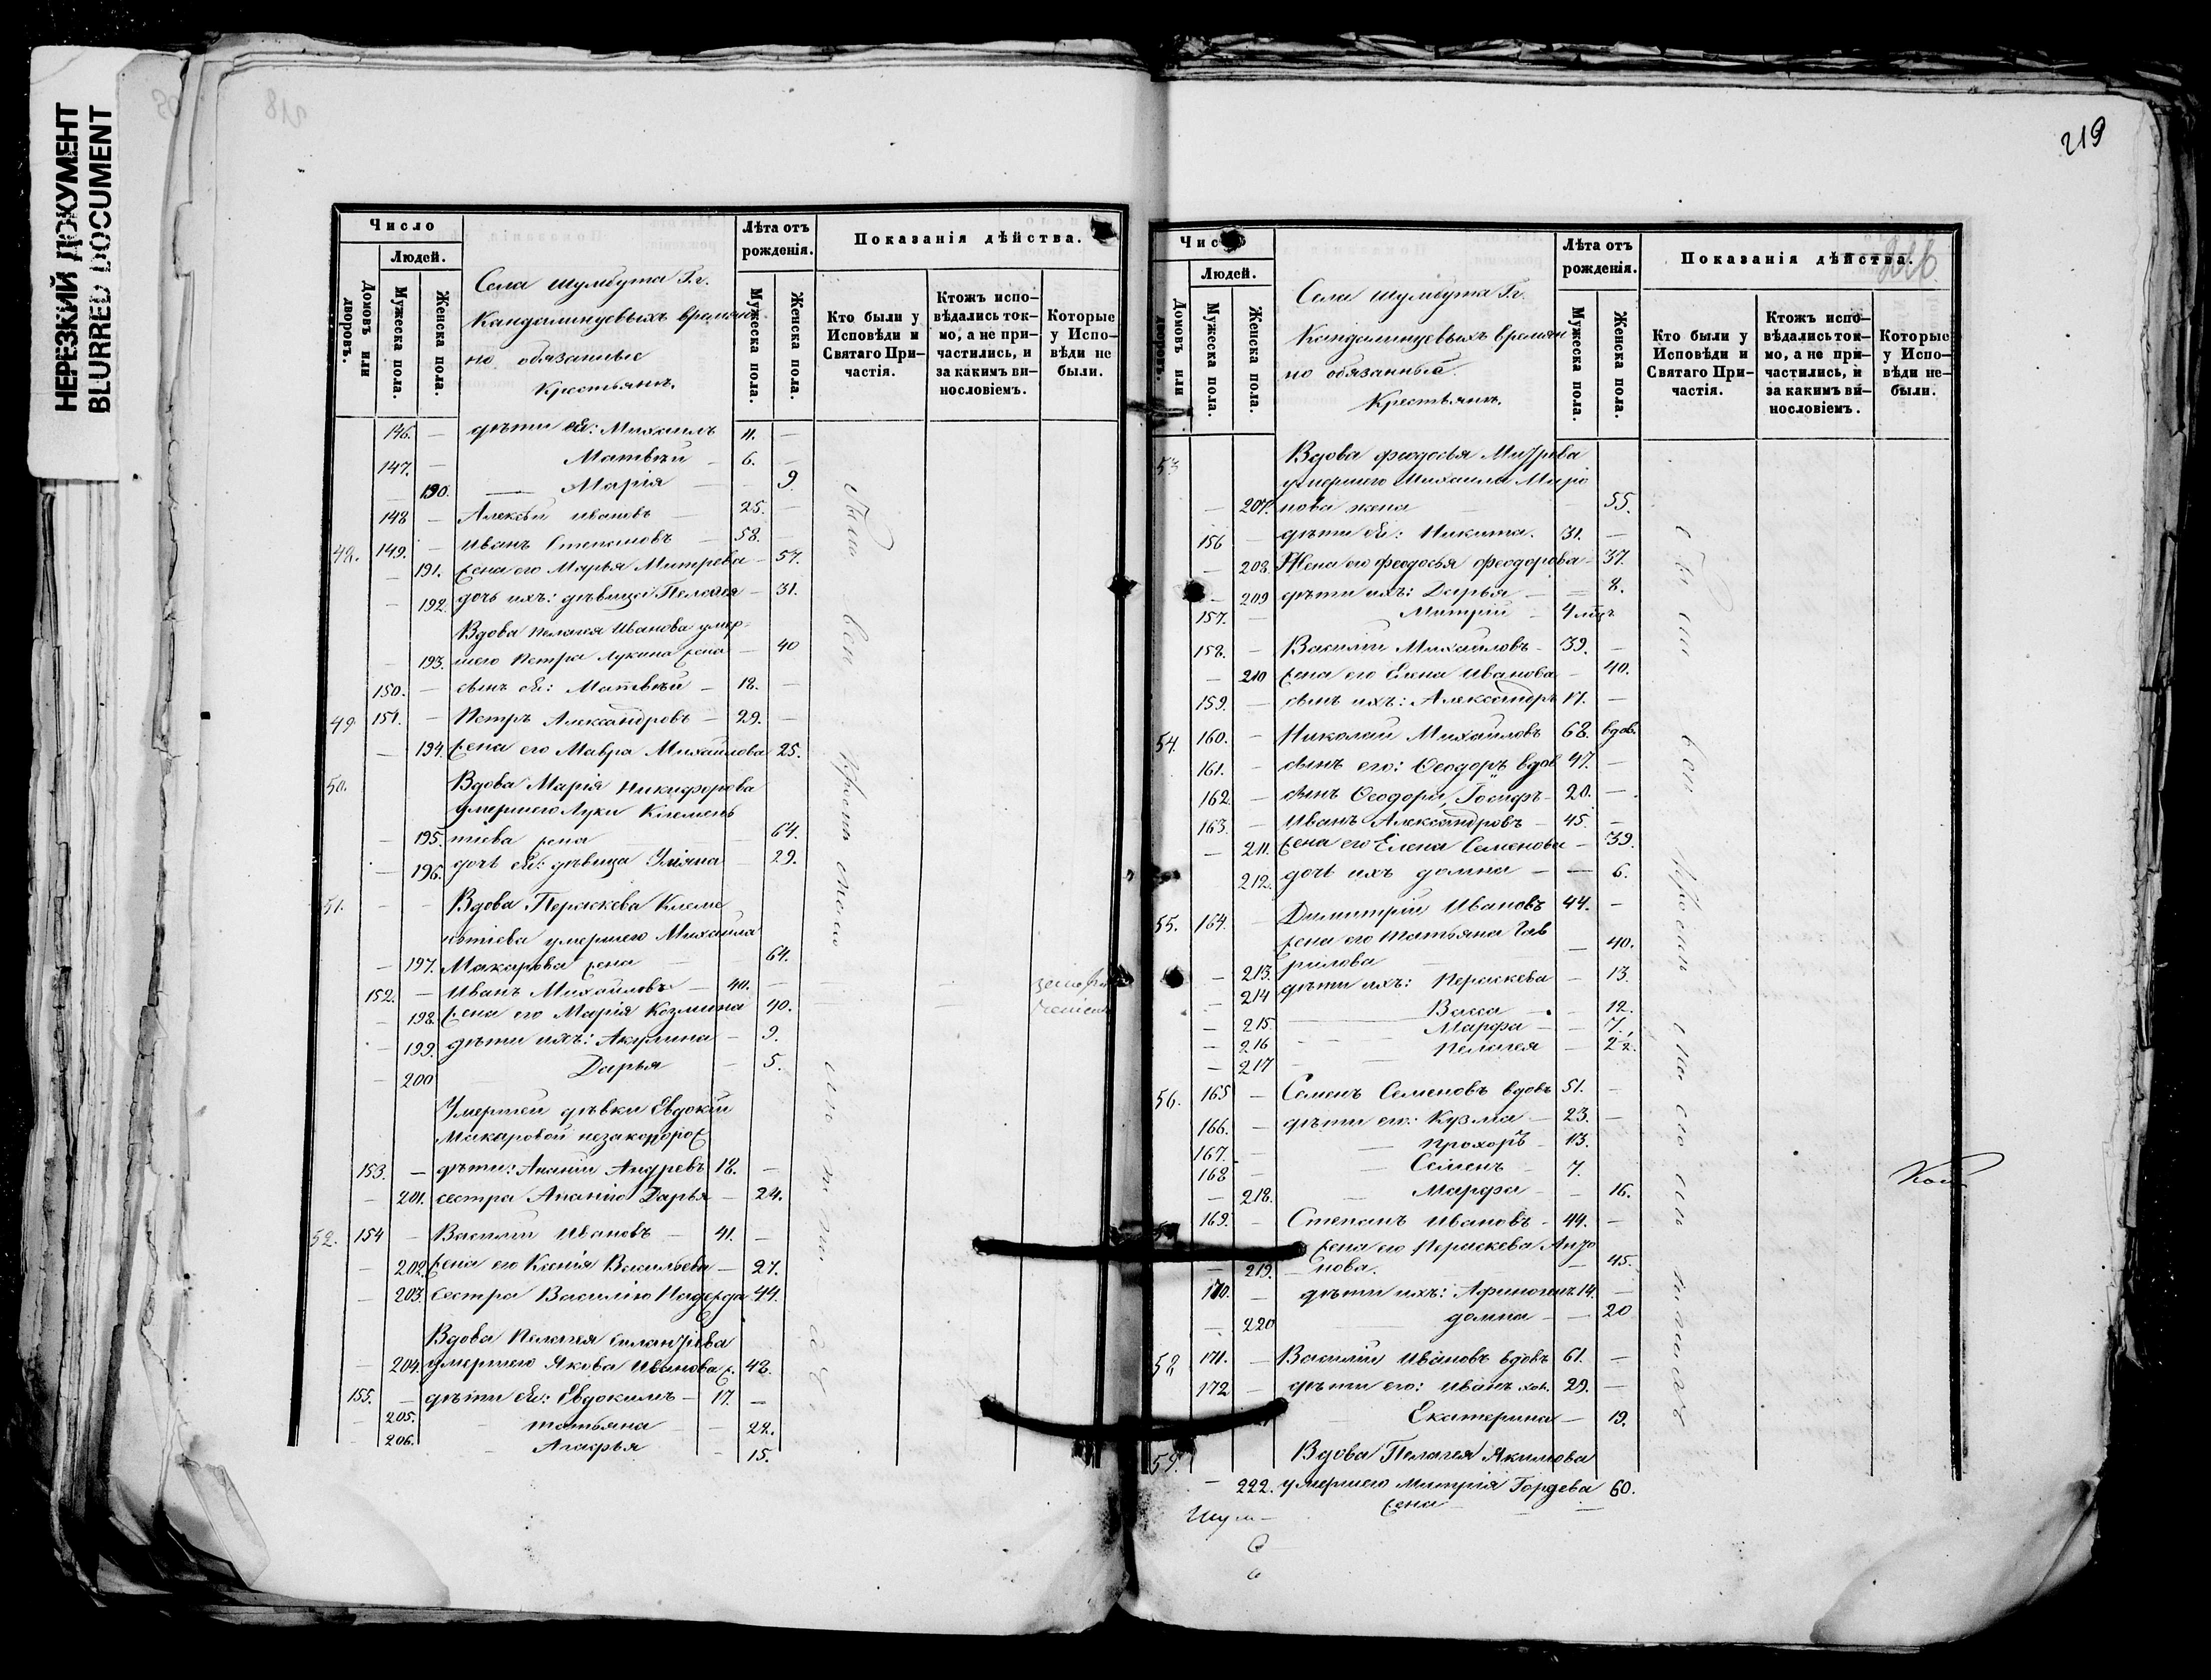 НЕРЕЗКИЙ ДОКУМЕНТ
BLURRED DOCUMENT
218
Число
Людей.
Домовъ или дворовъ.
Мужеска пола.
Женска пола.
Села Шумбута Гг.
Кандалинцовыхъ времян
но обязанные
Крестьянъ.
Лѣта отъ рожденія.
Мужеска пола.
Женска пола.
Показанія дѣйства.
Кто были у Исповѣди и Святаго Причастія.
Ктожъ исповѣдались токмо, а не причастились, и за какимъ винословіемъ.
Которые у Исповѣди не были.
146. — дѣти ея: Михаилъ 11. —
147. — Матвѣй — 6. —
— 190. — Марія — — 9.
148 — Алексѣй Ивановъ — 25. —
48. 149. — Иванъ Степановъ — 58.
— 191. жена его Марья Митрева — 57.
— 192. дочь ихъ: дѣвица Пелагея — 31.
Вдова Пелагея Иванова умер-
— 193. шего Петра Лукина жена — 40
150. — сынъ ея: Матвѣй — 18. —
49 151. — Петръ Александровъ — 29. —
— 194. жена его Мавра Михайлова 25.
50. Вдова Марія Никифорова
умершего Луки Клемень
— 195. тиева жена 64.
— 196. дочь ея: дѣвица Уліяна 29.
51. — — Вдова Пераскева Клеме
нтіева умершего Михаила
— 197. Макарова жена — 64.
152. — Иванъ Михайловъ — 40. —
— 198. жена его Марія Козмина 40.
— 199. дѣти ихъ: Акулина — 9.
— 200 Дарья — 5.
Умершей дѣвки Евдокіи
Макаровой незаконорож
153. — дѣти: Ананій Андревъ 18. —
— 201. сестра Ананію Дарья — 24.
52. 154 — Василій Ивановъ — 41. —
— 202. жена его Ксенія Васильева — 27.
— 203. Сестра Василію Надежда 44.
Вдова Пелагея Силантіева
— 204. умершего Якова Иванова ж. 48.
155. — дѣти ея: Евдокимъ — 17. —
— 205. Татьяна — 22.
— 206. Агафья — 15.
219
Число
Людей.
Домовъ или дворовъ.
Мужеска пола.
Женска пола.
Села Шумбута Гг.
Кандалинцовыхъ времян
но обязанныя.
Крестьянъ.
Лѣта отъ рожденія.
Мужеска пола.
Женска пола.
Показанія дѣйства.
Кто были у Исповѣди и Святаго Причастія.
Ктожъ исповѣдались токмо, а не причастились, и за какимъ винословіемъ.
Которые у Исповѣди небыли.
53 Вдова Феодосья Митрева
умершего Михаила Миро
— 207. нова жена 55.
156 — дѣти ея: Никита. 31. —
— 208. Жена его Феодосья Феодорова — 37.
— 209 дѣти ихъ: Дарья — 8.
157. — Митрій — 4 мѣц
158. — Василій Михайловъ — 39. —
— 210 жена его Елена Иванова — 40.
159. — сынъ ихъ: Александръ 17. —
54. 160. — Николай Михайловъ 68. вдов.
161. — сынъ его: Ѳеодоръ вдов 47. —
162. — сынъ Ѳеодора, Іосифъ — 20. —
163. — Иванъ Александровъ — 45. —
— 211. жена его Елена Семенова — 39.
212. дочь ихъ Домна — — 6.
55. 164. — Димитрій Ивановъ 44. —
жена его Татьяна Гав
— 213. рилова — 40.
— 214 дѣти ихъ: Пераскева — 13.
— 215. Васса — 12.
— 216 Марфа — 7.
— 217 Пелагея — 2 ½.
56. 165 — Семенъ Семеновъ вдовъ 51. —
166. — дѣти его: Кузма — 23. —
167. — Прохоръ — 13.
168 — Семенъ — 7.
— 218. Марфа — 16.
169. — Степанъ Ивановъ — 44. —
жена его Пераскева Анто
— 219. нова. — 45.
170. — дѣти ихъ: Афиногенъ 14. —
— 220 Домна — 20
58 171. — Василій Ивановъ вдовъ 61. —
172 — дѣти его: Иванъ хол. 29. —
Екатерина — 19.
59. Вдова Пелагея Якимова
— 222. умершего Митрія Гордева 60.
жена —